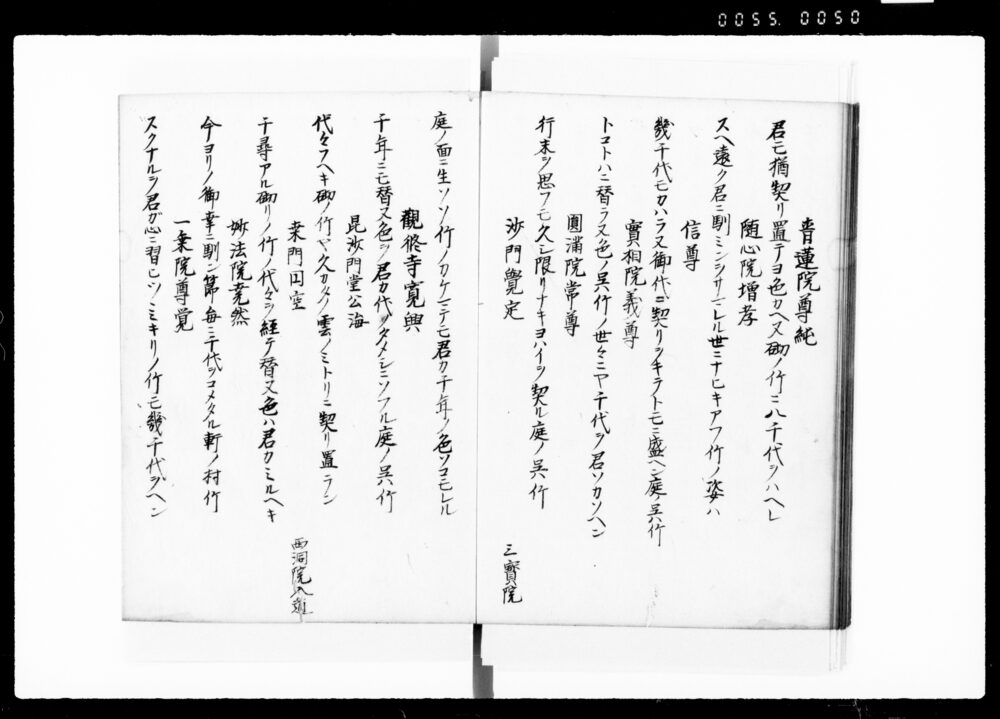 0055.0050
青蓮院尊純
君モ猶契リ置テヨ色カヘヌ砌ノ竹ニ八千代ヲハヘレ
随心院増孝
スヘ遠ク君ニ馴ミン世ニナヒキアフ竹ノ姿ハ
信尊
幾千代モカハラヌ御代ニ契リヲキラトモニ盛ヘン庭ノ呉竹
實相院義尊
トコトハニ替ラヌ色ノ呉竹ノ世々ニヤ千代ヲ君ソカソヘン
圓満院常尊
行末ヲ思フモ久シ限リナキヨハイヲ契ル庭ノ呉竹
沙門覺定
三寳院
庭ノ面ニ生ソソ竹ノカケニテモ君カ千年ノ色ソコモレル
觀修寺寛興
千年ニモ替ヌ色ヲ君カ代ノタメシニソフル庭ノ呉竹
毘沙門堂公海
代々フヘキ砌ノ竹ヤ久カタノ雲ノミトリニ契リ置ラン
桒門円空
西洞院入道
千尋アル砌リノ竹ノ代々ヲ経テ替ヌ色ハ君カミルヘキ
妙法院尭然
今ヨリノ御幸ニ馴ン節毎ニ千代ヲコメタル軒ノ村竹
一乗院尊覚
スクナルヲ君ガ心ニ習ヒツヽミキリノ竹モ幾千代ヲヘン